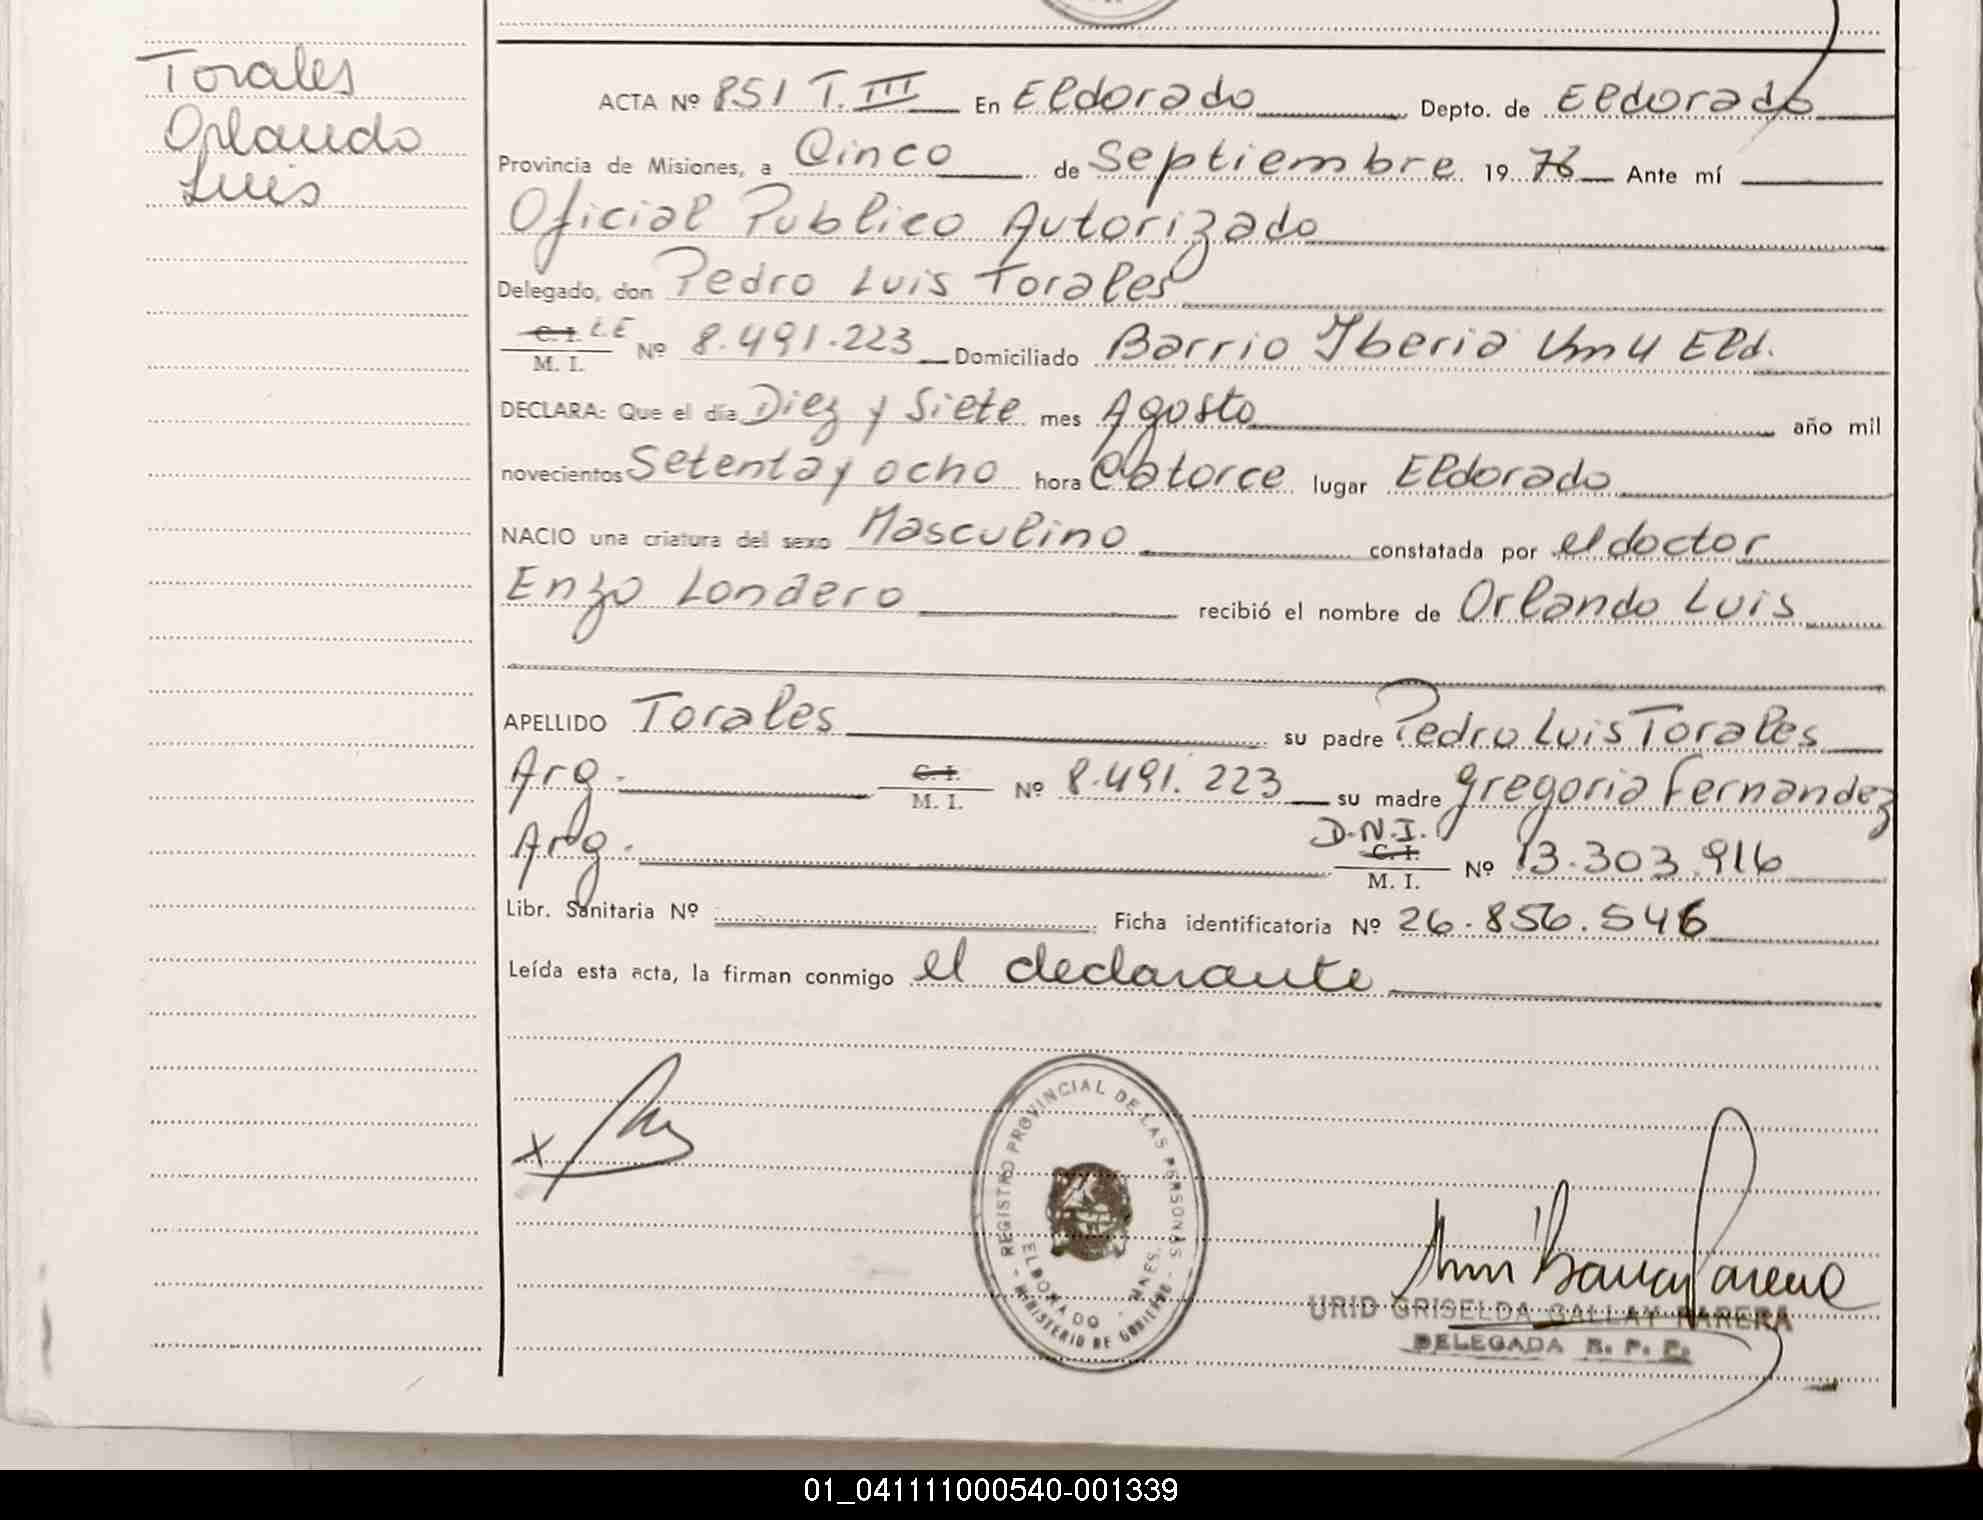 Torales
Orlando
Luis
ACTA Nº 851 T. III En Eldorado Depto. de Eldorado
Provincia de Misiones, a Cinco de Septiembre 1978 Ante mí
Oficial Publico Autorizado
Delegado, don Pedro Luis Torales
C. I. L.E
M. I. Nº 8.491.223 Domiciliado Barrio Iberia Km 4 Eld.
DECLARA: Que el día Diez y Siete mes Agosto año mil
novecientos Setenta y ocho hora Catorce lugar Eldorado
NACIO una criatura del sexo Masculino constatada por el doctor
Enzo Londero recibió el nombre de Orlando Luis
APELLIDO Torales su padre Pedro Luis Torales
Arg. C. I. M. I. Nº 8.491.223 su madre Gregoria Fernandez
Arg. D.N.I. C. I. M. I. Nº 13.303.916
Libr. Sanitaria Nº Ficha identificatoria Nº 26.856.546
Leída esta acta, la firman conmigo el declarante
REGISTRO PROVINCIAL DE LAS PERSONAS
ELDORADO - MNES.
- MINISTERIO DE GOBIERNO -
URID GRISELDA GALLAY PARERA
DELEGADA R. P. P.
01_041111000540-001339